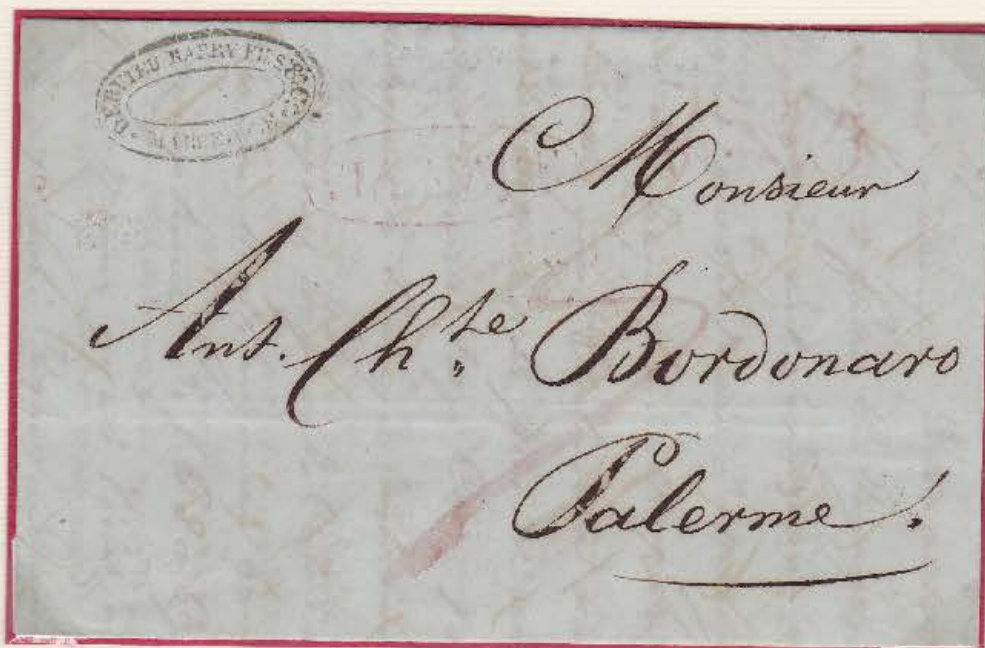 FILS & Cⁱᵉ
Monsieur
Ant. Ch.te Bordonaro
Palerme.